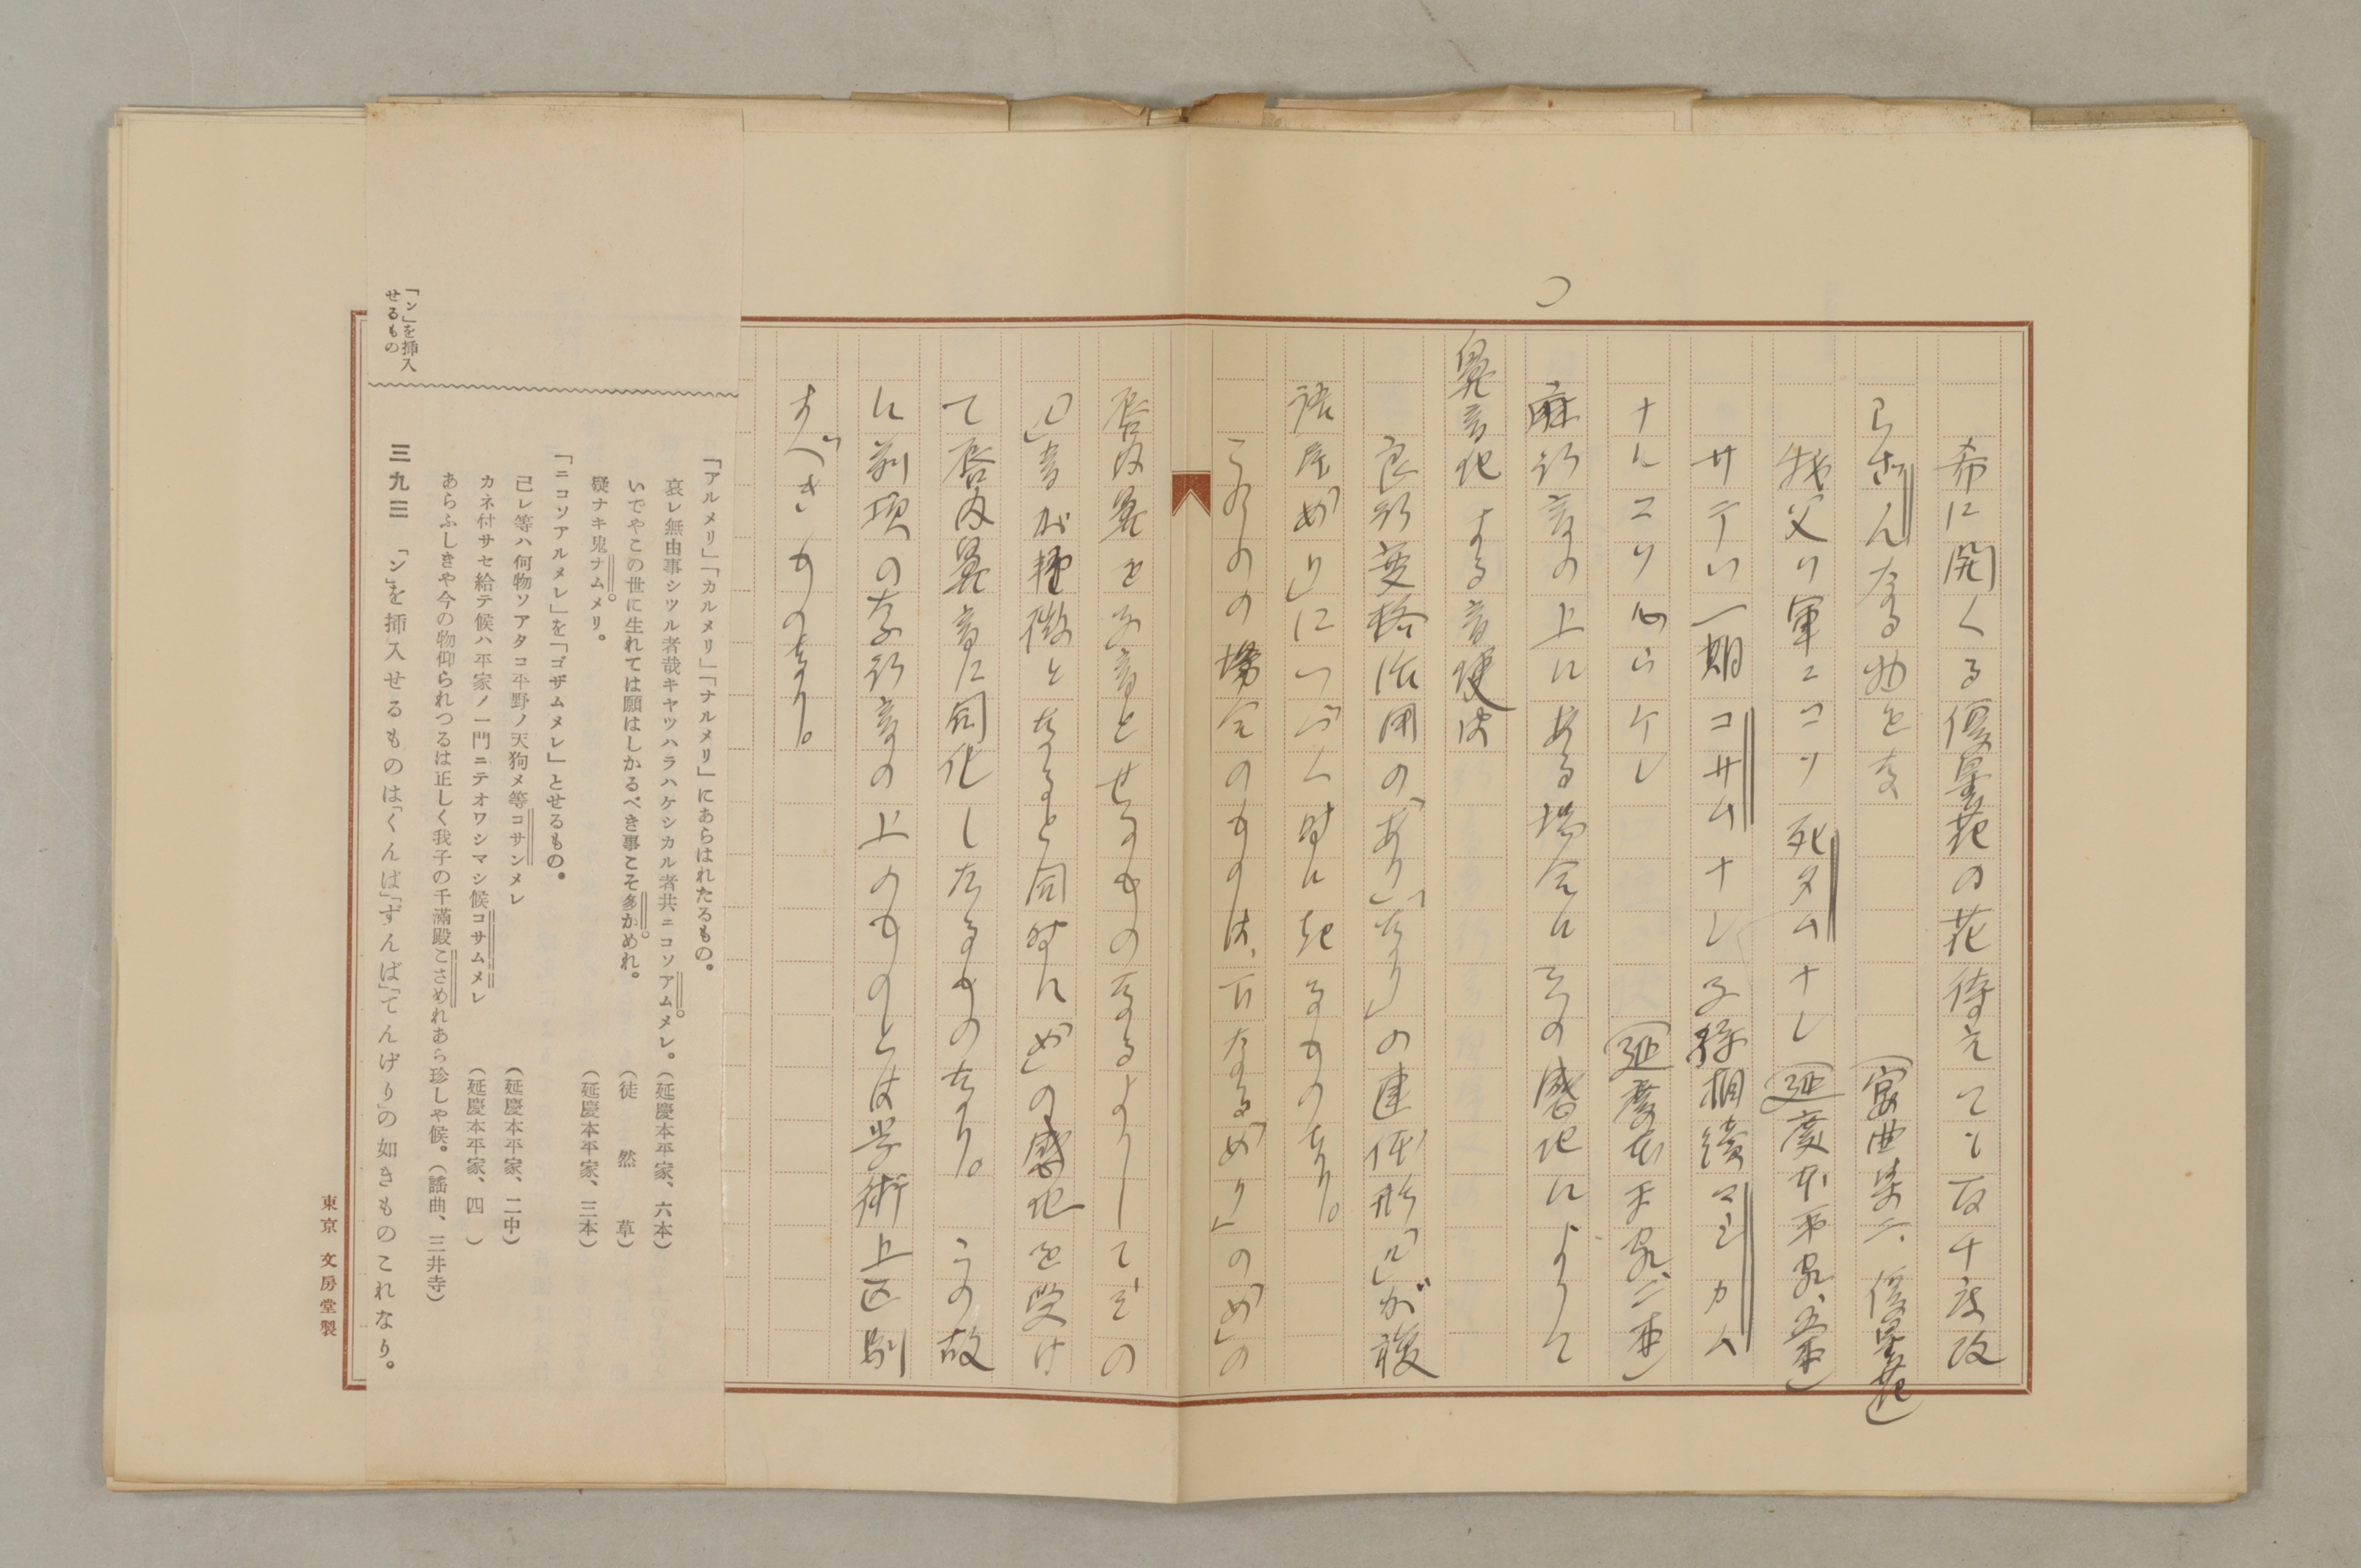 希に開くる優曇花の花待えても百千度改
らざんなる物を哉　　　（宴曲集二、優曇花）
我父ハ軍ニコソ死タムナレ（延慶本平家、五本）
サテハ一期コサムナレ子孫相續マシカム
ナルコソ心ウケレ　　　（延慶本平家、二本）
麻行音の上にある場合にその感化によりて
鼻音化する音便は
良行変格活用の「あり」「なり」の連体形「ル」が複
語尾「めり」につゞく時に起るものなり。
これらの場合のものは、下なる「めり」の「め」の
唇内鼻を子音とせるものなるよりしてその
「ル」音が軽微となると同時に「め」の感化を受け
て唇内鼻音に同化したるものなり。この故
に前項の奈行音の上のものとは学術上区別
すべきものなり。
「アルメリ」「カルメリ」「ナルメリ」にあらはれたるもの。
哀レ無由事シツル者哉キヤツハラハケシカル者共ニコソアムメレ。（延慶本平家、六本）
いでやこの世に生れては願はしかるべき事こそ多かめれ。（徒然草）
疑ナキ鬼ナムメリ。（延慶本平家、三本）
「ニコソアルメレ」を「ゴザムメレ」とせるもの。
己レ等ハ何物ソアタコ平野ノ天狗メ等コサンメレ（延慶本平家、二中）
カネ付サセ給テ候ハ平家ノ一門ニテオワシマシ候コサムメレ（延慶本平家、四）
あらふしきや今の物仰られつるは正しく我子の千滿殿こさめれあら珍しや候。（謠曲、三井寺）
「ン」を挿入
せるもの
三九三　「ン」を挿入せるものは「くんば」「ずんば」「てんげり」の如きものこれなり。
東京　文房堂製